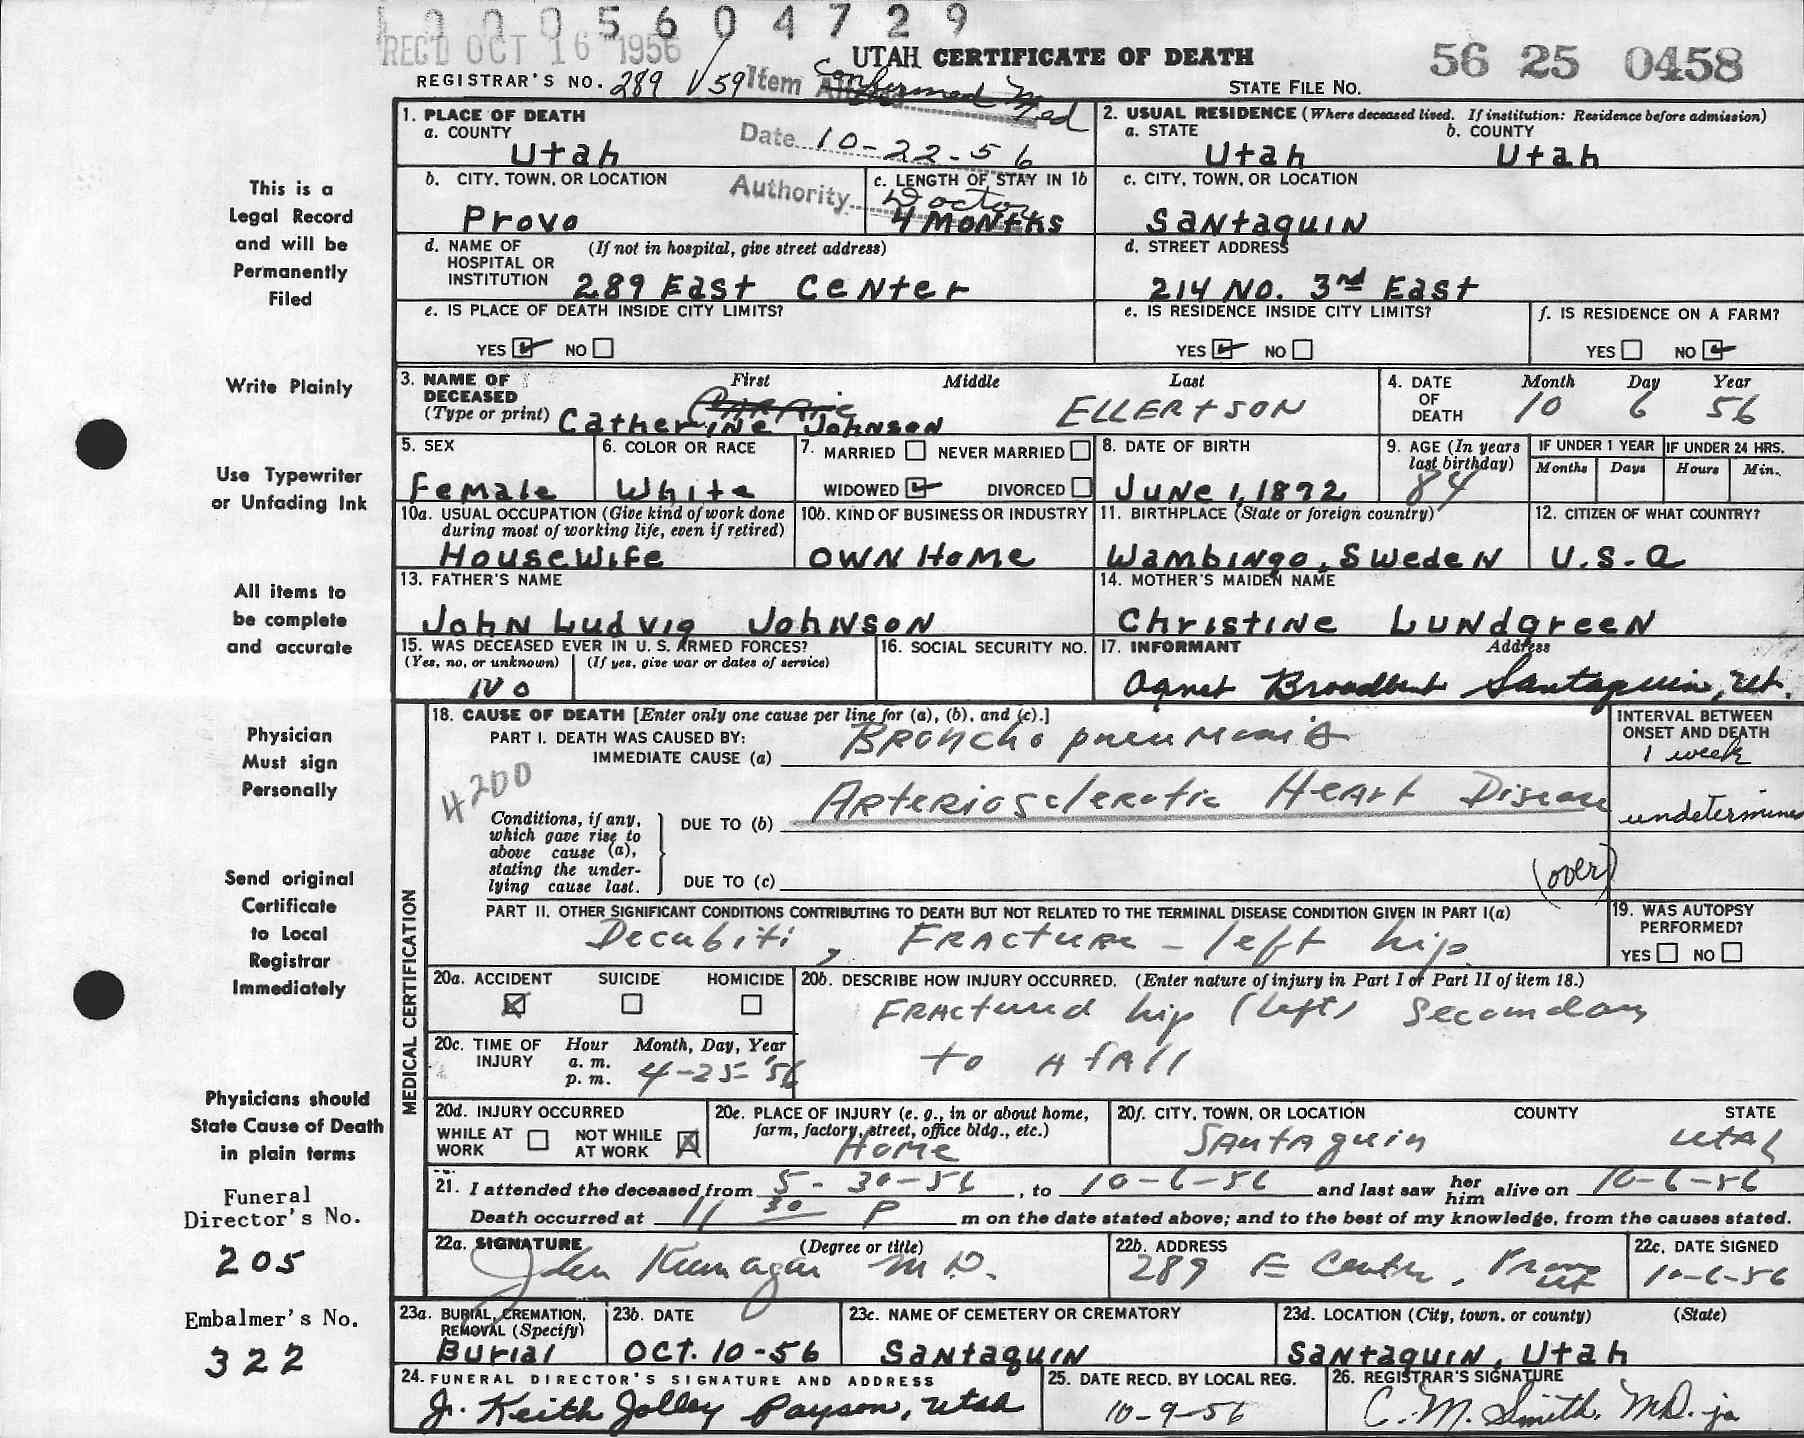 1 0 0 0 5 6 0 4 7 2 9
REC'D OCT 16 1956
UTAH CERTIFICATE OF DEATH
56 25 0458
REGISTRAR'S NO. 289 V59 Item Confirmed Med
STATE FILE NO.
1. PLACE OF DEATH
a. COUNTY
Utah
Date 10-22-56
2. USUAL RESIDENCE (Where deceased lived. If institution: Residence before admission)
a. STATE b. COUNTY
Utah Utah
This is a
Legal Record
and will be
Permanently
Filed
b. CITY, TOWN, OR LOCATION
Provo
Authority Doctor
c. LENGTH OF STAY IN 1b
4 MONTHS
c. CITY, TOWN, OR LOCATION
SANTAQUIN
d. NAME OF HOSPITAL OR INSTITUTION (If not in hospital, give street address)
289 East Center
d. STREET ADDRESS
214 NO. 3rd East
e. IS PLACE OF DEATH INSIDE CITY LIMITS?
YES NO
e. IS RESIDENCE INSIDE CITY LIMITS?
YES NO
f. IS RESIDENCE ON A FARM?
YES NO
Write Plainly
3. NAME OF DECEASED (Type or print)
First Middle Last
Catherine Johnson ELLERTSON
4. DATE OF DEATH
Month Day Year
10 6 56
Use Typewriter
or Unfading Ink
5. SEX
Female
6. COLOR OR RACE
White
7. MARRIED NEVER MARRIED
WIDOWED DIVORCED
8. DATE OF BIRTH
June 1, 1872
9. AGE (In years last birthday)
84
IF UNDER 1 YEAR
Months Days
IF UNDER 24 HRS.
Hours Min.
10a. USUAL OCCUPATION (Give kind of work done
during most of working life, even if retired)
Housewife
10b. KIND OF BUSINESS OR INDUSTRY
OWN HOME
11. BIRTHPLACE (State or foreign country)
Wambingo, Sweden
12. CITIZEN OF WHAT COUNTRY?
U.S.A
All items to
be complete
and accurate
13. FATHER'S NAME
John Ludvig Johnson
14. MOTHER'S MAIDEN NAME
Christine Lundgreen
15. WAS DECEASED EVER IN U. S. ARMED FORCES?
(Yes, no, or unknown) (If yes, give war or dates of service)
No
16. SOCIAL SECURITY NO.
17. INFORMANT Address
Agnet Broadbent Santaquin, Ut.
Physician
Must sign
Personally
MEDICAL CERTIFICATION
18. CAUSE OF DEATH [Enter only one cause per line for (a), (b), and (c).]
PART I. DEATH WAS CAUSED BY:
IMMEDIATE CAUSE (a) Bronchopneumonia
INTERVAL BETWEEN
ONSET AND DEATH
1 week
4200
Conditions, if any,
which gave rise to
above cause (a),
stating the under-
lying cause last.
DUE TO (b) Arteriosclerotic Heart Disease
undetermined
DUE TO (c) (over)
Send original
Certificate
to Local
Registrar
Immediately
PART II. OTHER SIGNIFICANT CONDITIONS CONTRIBUTING TO DEATH BUT NOT RELATED TO THE TERMINAL DISEASE CONDITION GIVEN IN PART I(a)
Decubiti, Fracture - left hip
19. WAS AUTOPSY
PERFORMED?
YES NO
20a. ACCIDENT SUICIDE HOMICIDE
20b. DESCRIBE HOW INJURY OCCURRED. (Enter nature of injury in Part I or Part II of item 18.)
Fractured hip (left) secondary
to A fall
20c. TIME OF INJURY
Hour Month, Day, Year
a. m.
p. m.
4-25-'56
Physicians should
State Cause of Death
in plain terms
20d. INJURY OCCURRED
WHILE AT WORK NOT WHILE AT WORK
20e. PLACE OF INJURY (e. g., in or about home,
farm, factory, street, office bldg., etc.)
Home
20f. CITY, TOWN, OR LOCATION COUNTY STATE
Santaquin Utah
21. I attended the deceased from 5-30-56, to 10-6-56 and last saw her him alive on 10-6-56
Death occurred at 11 30 P m on the date stated above; and to the best of my knowledge, from the causes stated.
Funeral
Director's No.
205
22a. SIGNATURE (Degree or title)
Kumagai M D.
22b. ADDRESS
289 E Center, Provo Ut
22c. DATE SIGNED
10-6-56
Embalmer's No.
322
23a. BURIAL, CREMATION,
REMOVAL (Specify)
Burial
23b. DATE
OCT. 10-56
23c. NAME OF CEMETERY OR CREMATORY
SANTAQUIN
23d. LOCATION (City, town, or county) (State)
SANTAQUIN, Utah
24. FUNERAL DIRECTOR'S SIGNATURE AND ADDRESS
J. Keith Jolley Payson, Utah
25. DATE RECD. BY LOCAL REG.
10-9-56
26. REGISTRAR'S SIGNATURE
C. M. Smith, M.D. ja